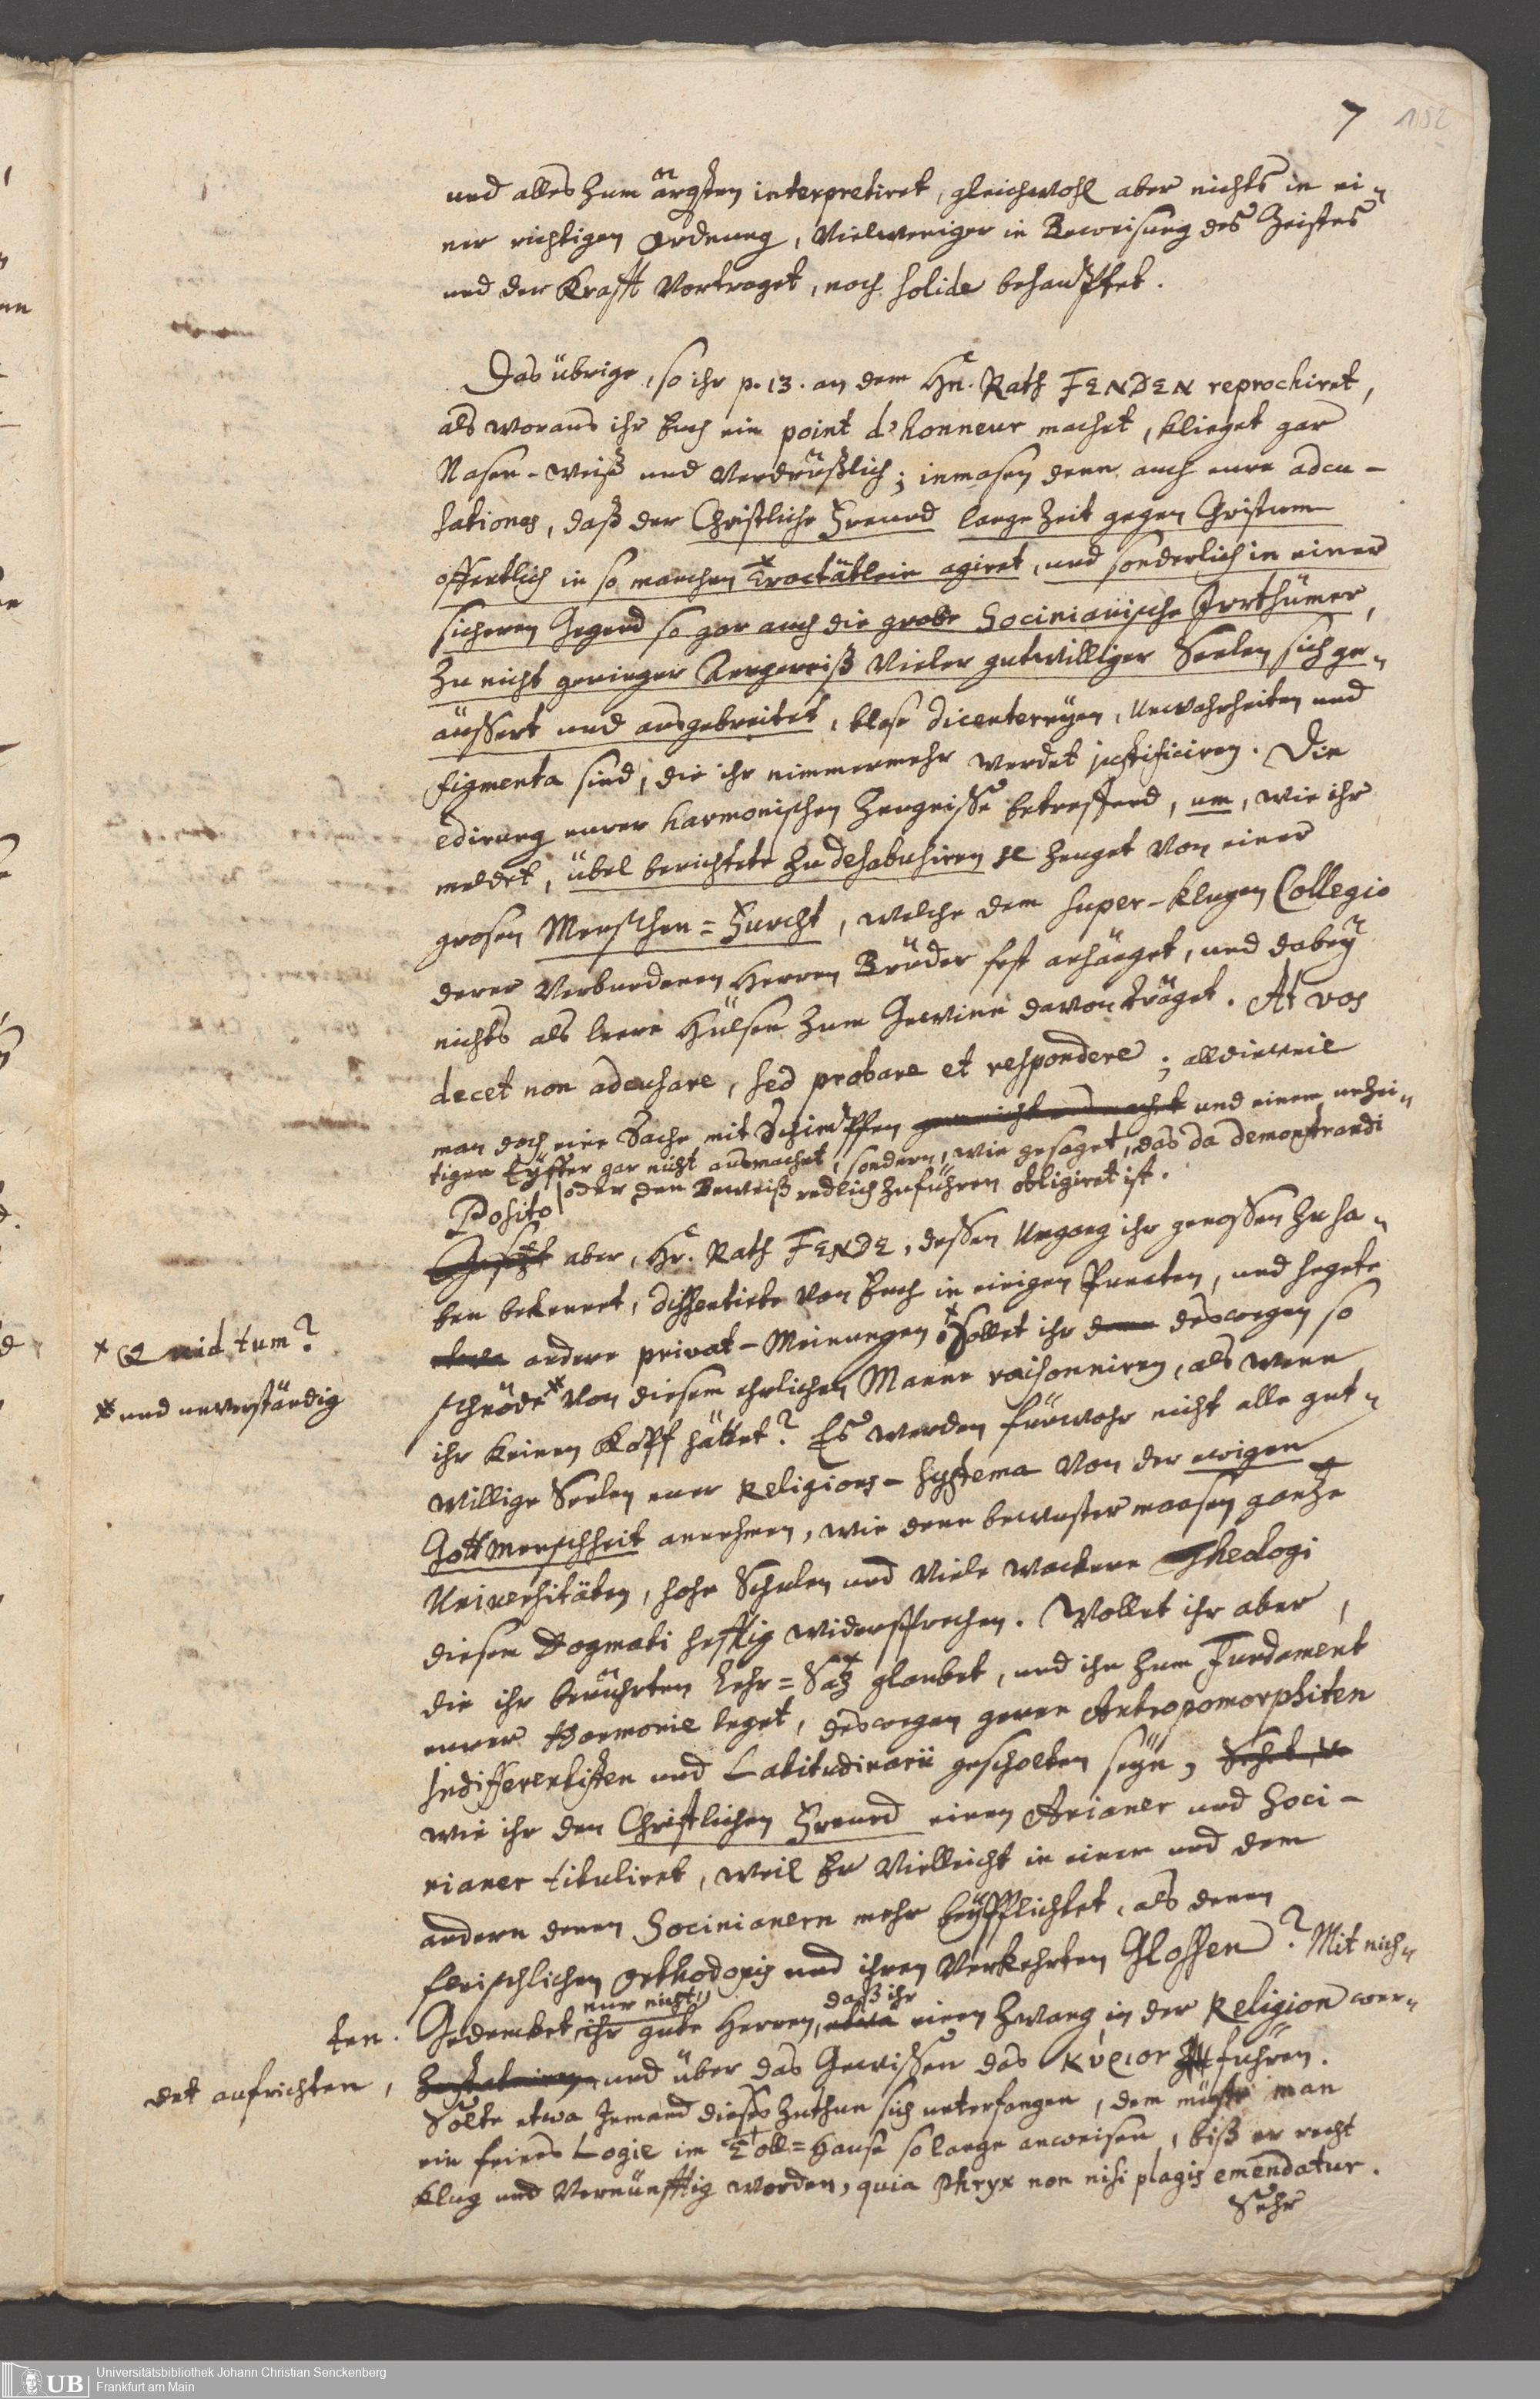 7 152
und alles zum ärgsten interpretiret, gleichwohl aber nichts in ei-
ner richtigen Ordnung, vielweniger in Beweisung des Geistes
und der Krafft vortraget, noch solide behauptet.
Das übrige, so ihr p. 13. an dem Hn. Rath FENDEN reprochiret,
als woraus ihr Euch ein point d'honneur machet, klinget gar
Nasen-weiß und verdrüßlich; inmasen denn auch eure adcu-
sationes, daß der Christliche Freund lange Zeit gegen Christum
offentlich in so manchen Tractätlein agiret, und sonderlich in einer
sicheren Gegend so gar auch die grobe Socinianische Irrthümer,
zu nicht geringer Aergerniß vieler gutwilliger Seelen sich ge-
äussert und ausgebreitet, blose dicentereyen, Unwahrheiten und
figmenta sind, die ihr nimmermehr werdet justificiren. Die
edirung eurer harmonischen Zeugnisse betreffend, um, wie ihr
meldet, übel berichtete zu desabusiren se zeuget von einer
grosen Menschen=Furcht, welche dem super-klugen Collegio
derer Verbundenen Herren Brüder fest anhänget, und dabey
nichts als leere Hülsen zum Gewinn davon träget. At vos
decet non adcusare, sed probare et respondere; alldieweil
man doch eine Sache mit Schimpffen gar nicht ausmachet und einem unzei-
tigen Eyffer gar nicht ausmachet, sondern, wie gesaget, das da demonstrandi
oder den Beweiß redlich zuführen obligiret ist.
Posito
Gesetzt aber, Hr. Rath FENDE, dessen Umgang ihr genossen zu ha-
ben bekennet, dissentirte von Euch in einigen Puncten, und hegete
etwa andere privat-Meinungen * Sollet ihr denn deswegen so
* Quid tum?
schnöde * von diesem ehrlichen Manne raisonniren, als wenn
* und unverständig
ihr keinen Kopff hättet? Es werden fürwahr nicht alle gut-
willige Seelen euer Religions-Systema von der ewigen
Gottmenschheit annehmen, wie denn bewuster maasen gantze
Universitäten, hohe Schulen und viele wackere Theologi
diesem Dogmati hefftig widersprechen. Wollet ihr aber,
die ihr berührten Lehr=Satz glaubet, und ihn zum Fundament
eurer Harmonie leget, deswegen gerne Antropomorphiten
Indifferentisten und Latitudinarii gescholten seyn,
wie ihr den Christlichen Freund einen Arianer und Soci-
nianer tituliret, weil Er vielleicht in einem und dem
andern denen Socinianern mehr beypflichtet, als denen
fleischlichen Orthodoxis und ihren verkehrten Glossen? Mit nich-
ten. Gedencket nur nicht, ihr gute Herren, daß ihr etwa einen Zwang in der Religion wer-
det aufrichten, und über das Gewissen das κύριον führen.
Solte etwa Jemand dieses zuthun sich unterfangen, dem müste man
ein feines Logie im Toll=Hause solange anweisen, biß er recht
klug und vernünfftig worden, quia Phryx non nisi plagis emendatur.
Sehr
UB Universitätsbibliothek Johann Christian Senckenberg
Frankfurt am Main